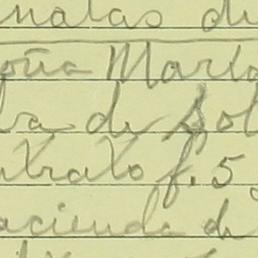 natas de
oña Marta
ba de Sol
ntrato f. 5
acienda de